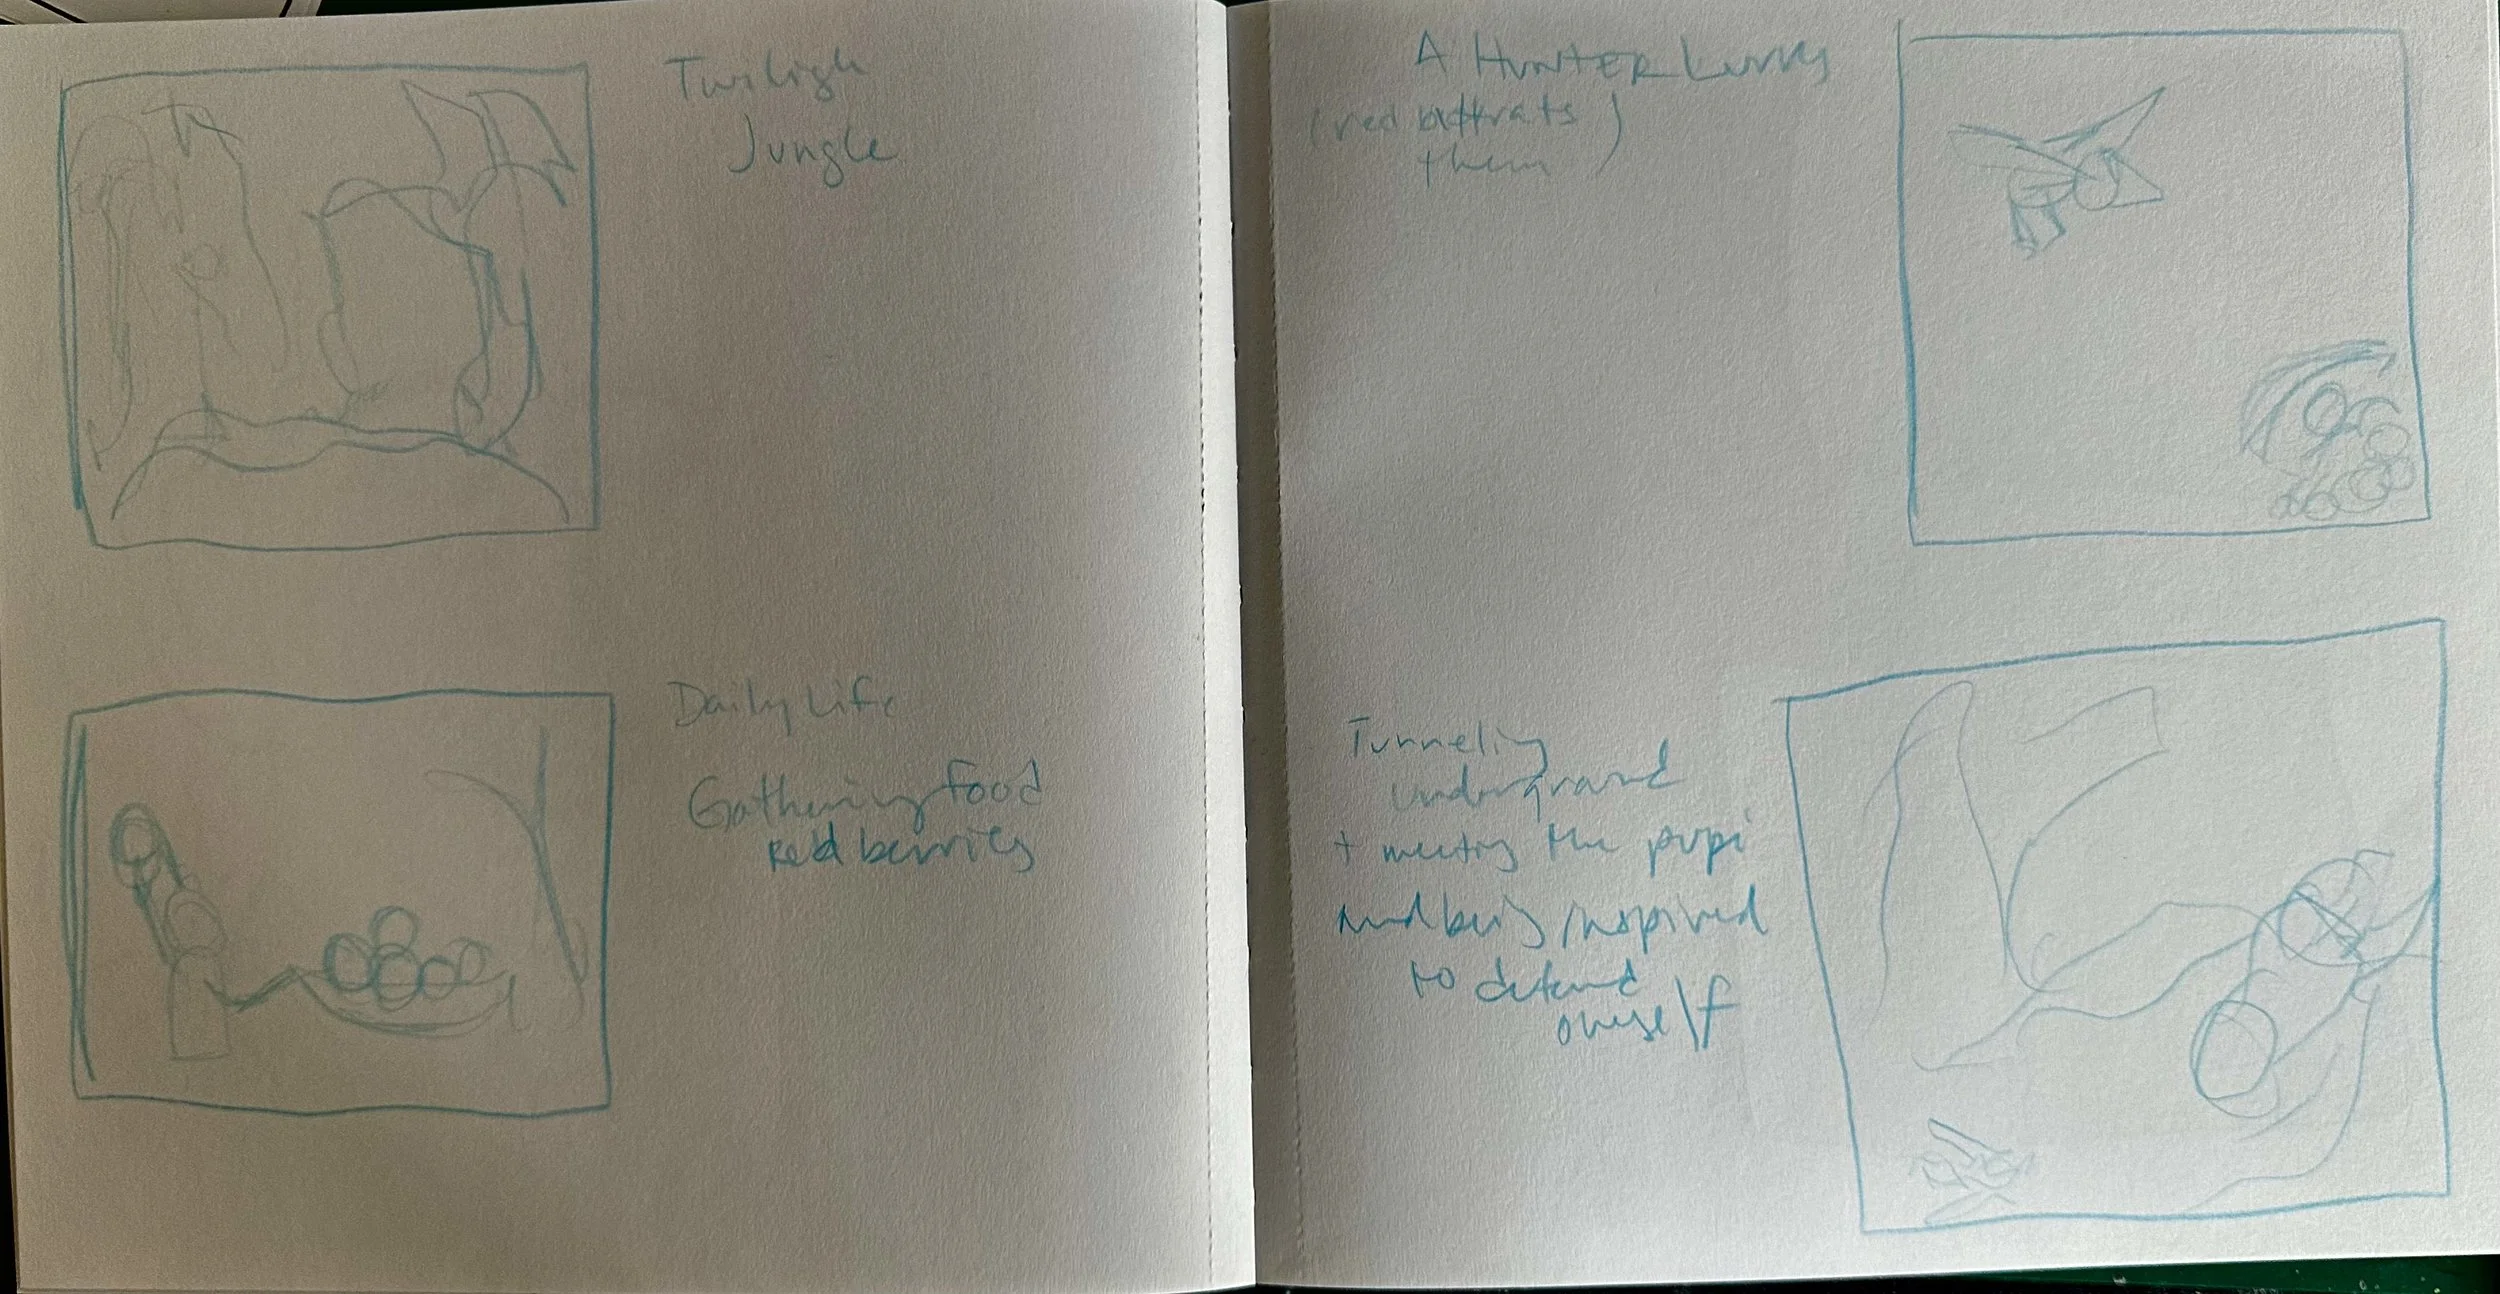 Twiligh
Jungle
Daily Life
Gathering food
Red berries
A HUNTER Lurks
(red attrats
them)
Tunneling
underground
+ meeting the pupi
and being inspired
to defend
oneself